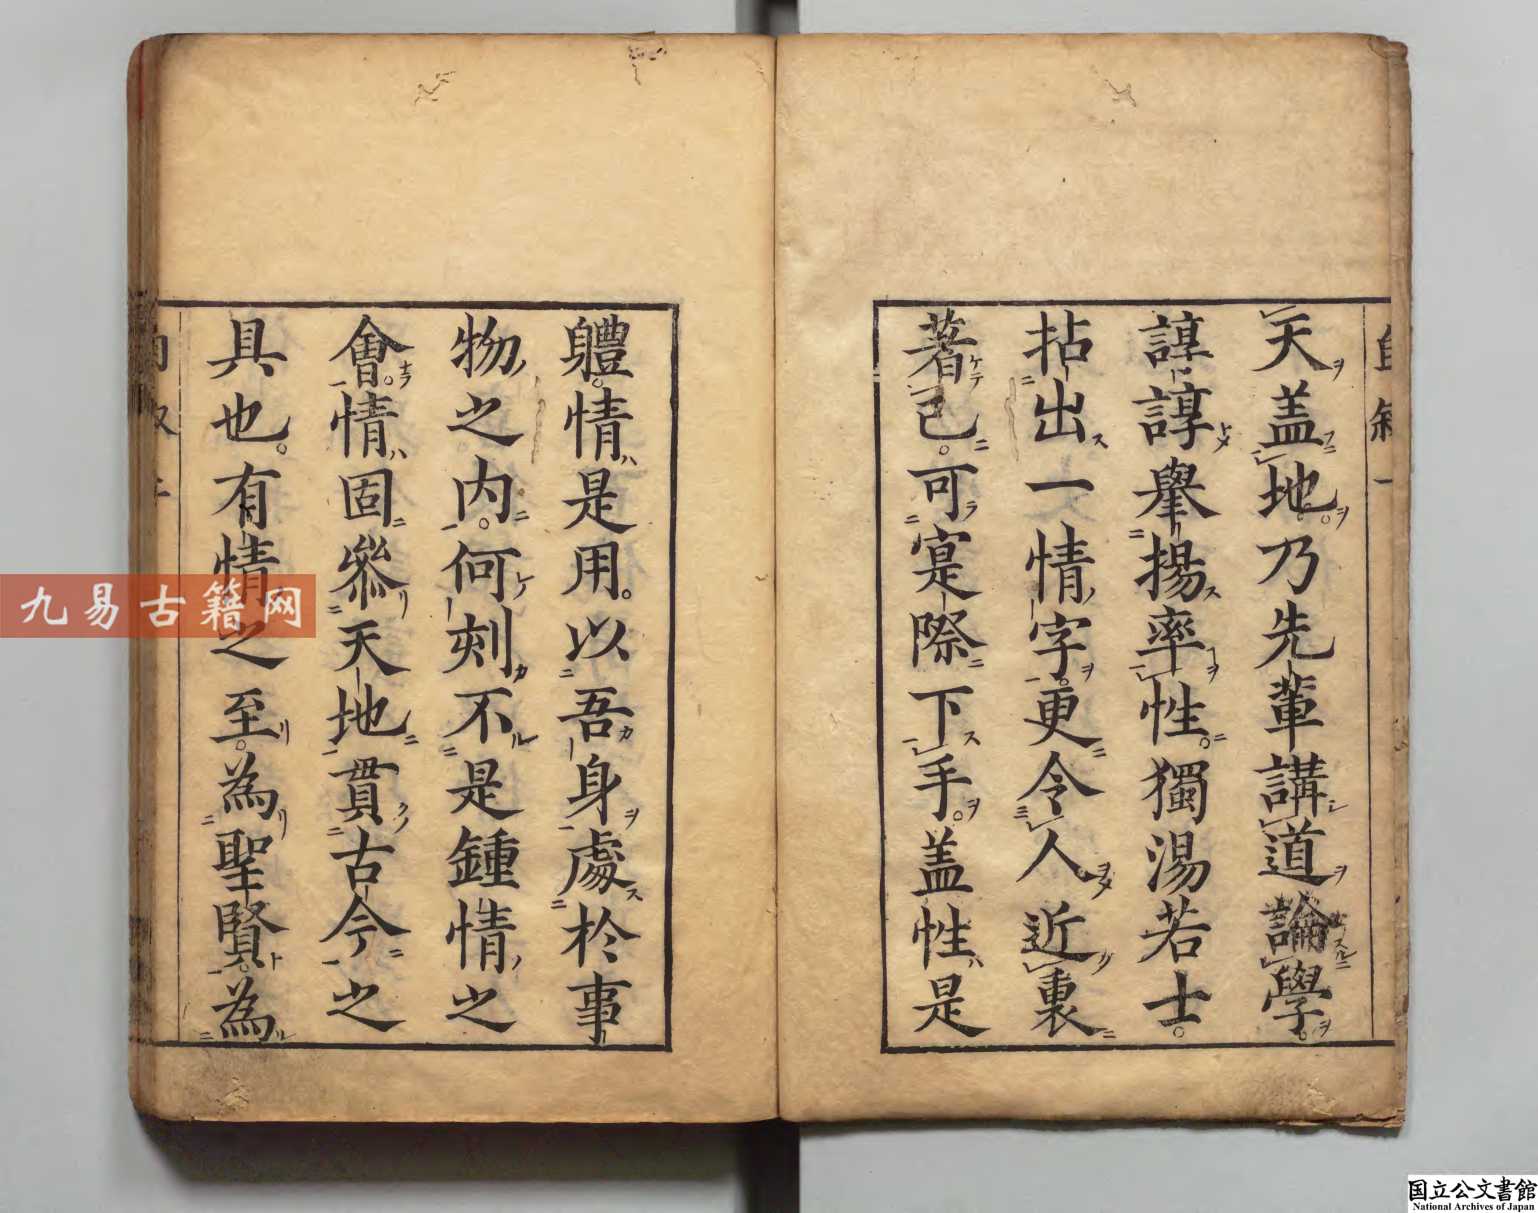 天盖地。乃先輩講道論學。
諄諄擧揚率性。獨湯若士。
拈出一情字。更令人近裏
著己。可寔際下手。盖性是
軆。情是用。以吾身處於事
物之内。何刻不是鍾情之
會。情固叅天地貫古今之
具也。有情之至。為聖賢。為
九易古籍网
国立公文書館
National Archives of Japan